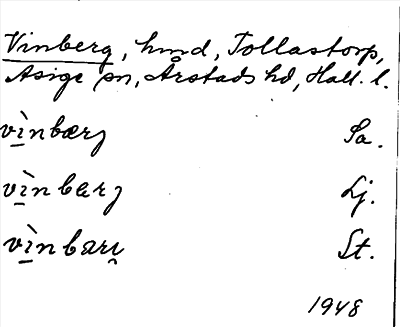 Vinberg, hmd, Tollastorp,
Asige sn, Årstads hd, Hall. l.
vì̠nbærj Sa.
vì̠nbærj Lj.
vì̠nbæri̯ St.
1948